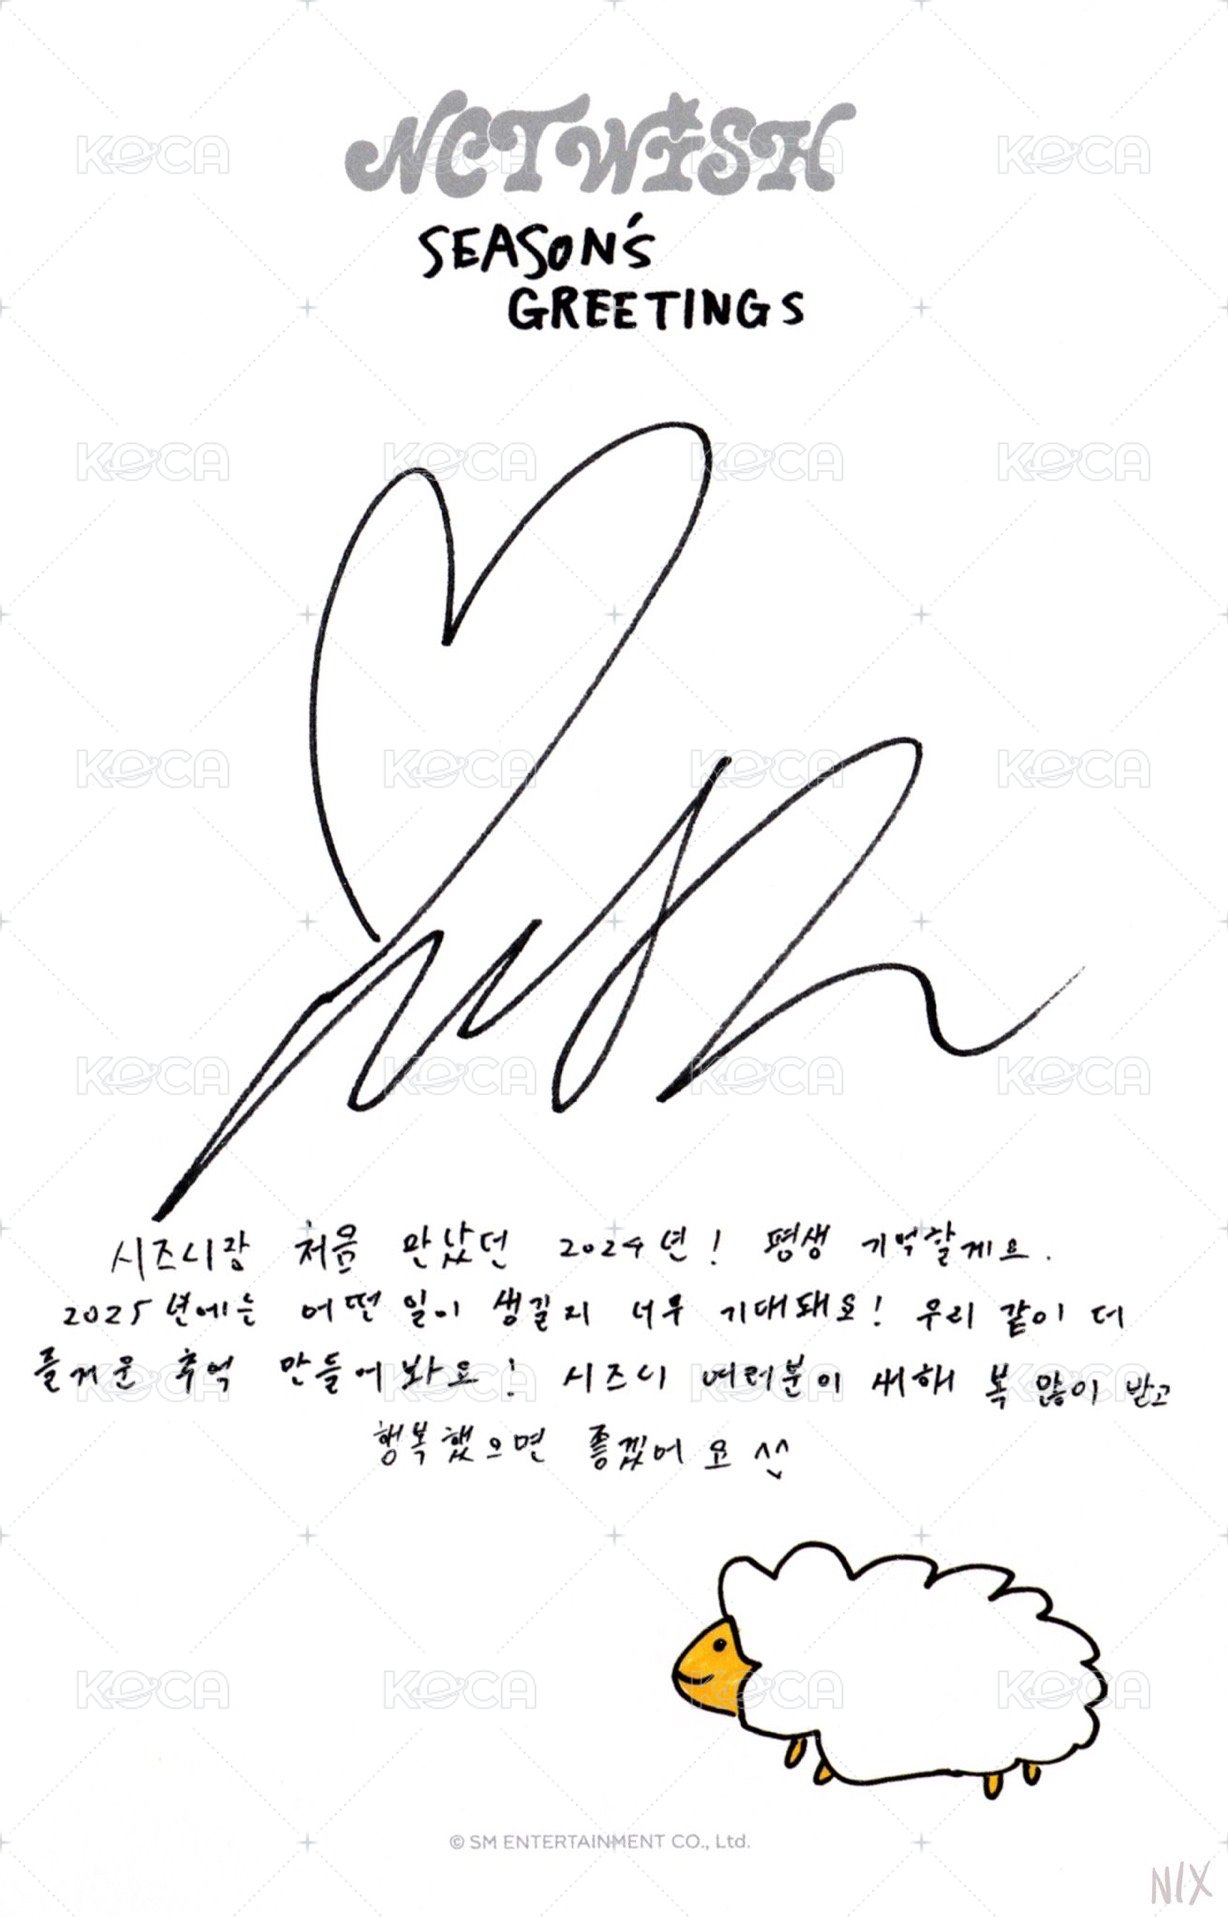 NCT WISH
SEASON'S
GREETINGS
시즈니랑 처음 만났던 2024년! 평생 기억할게요.
2025년에는 어떤 일이 생길지 너무 기대돼요! 우리 같이 더
즐거운 추억 만들어봐요! 시즈니 여러분이 새해 복 많이 받고
행복했으면 좋겠어요 ^^
© SM ENTERTAINMENT CO., Ltd.
N/X
KOCA